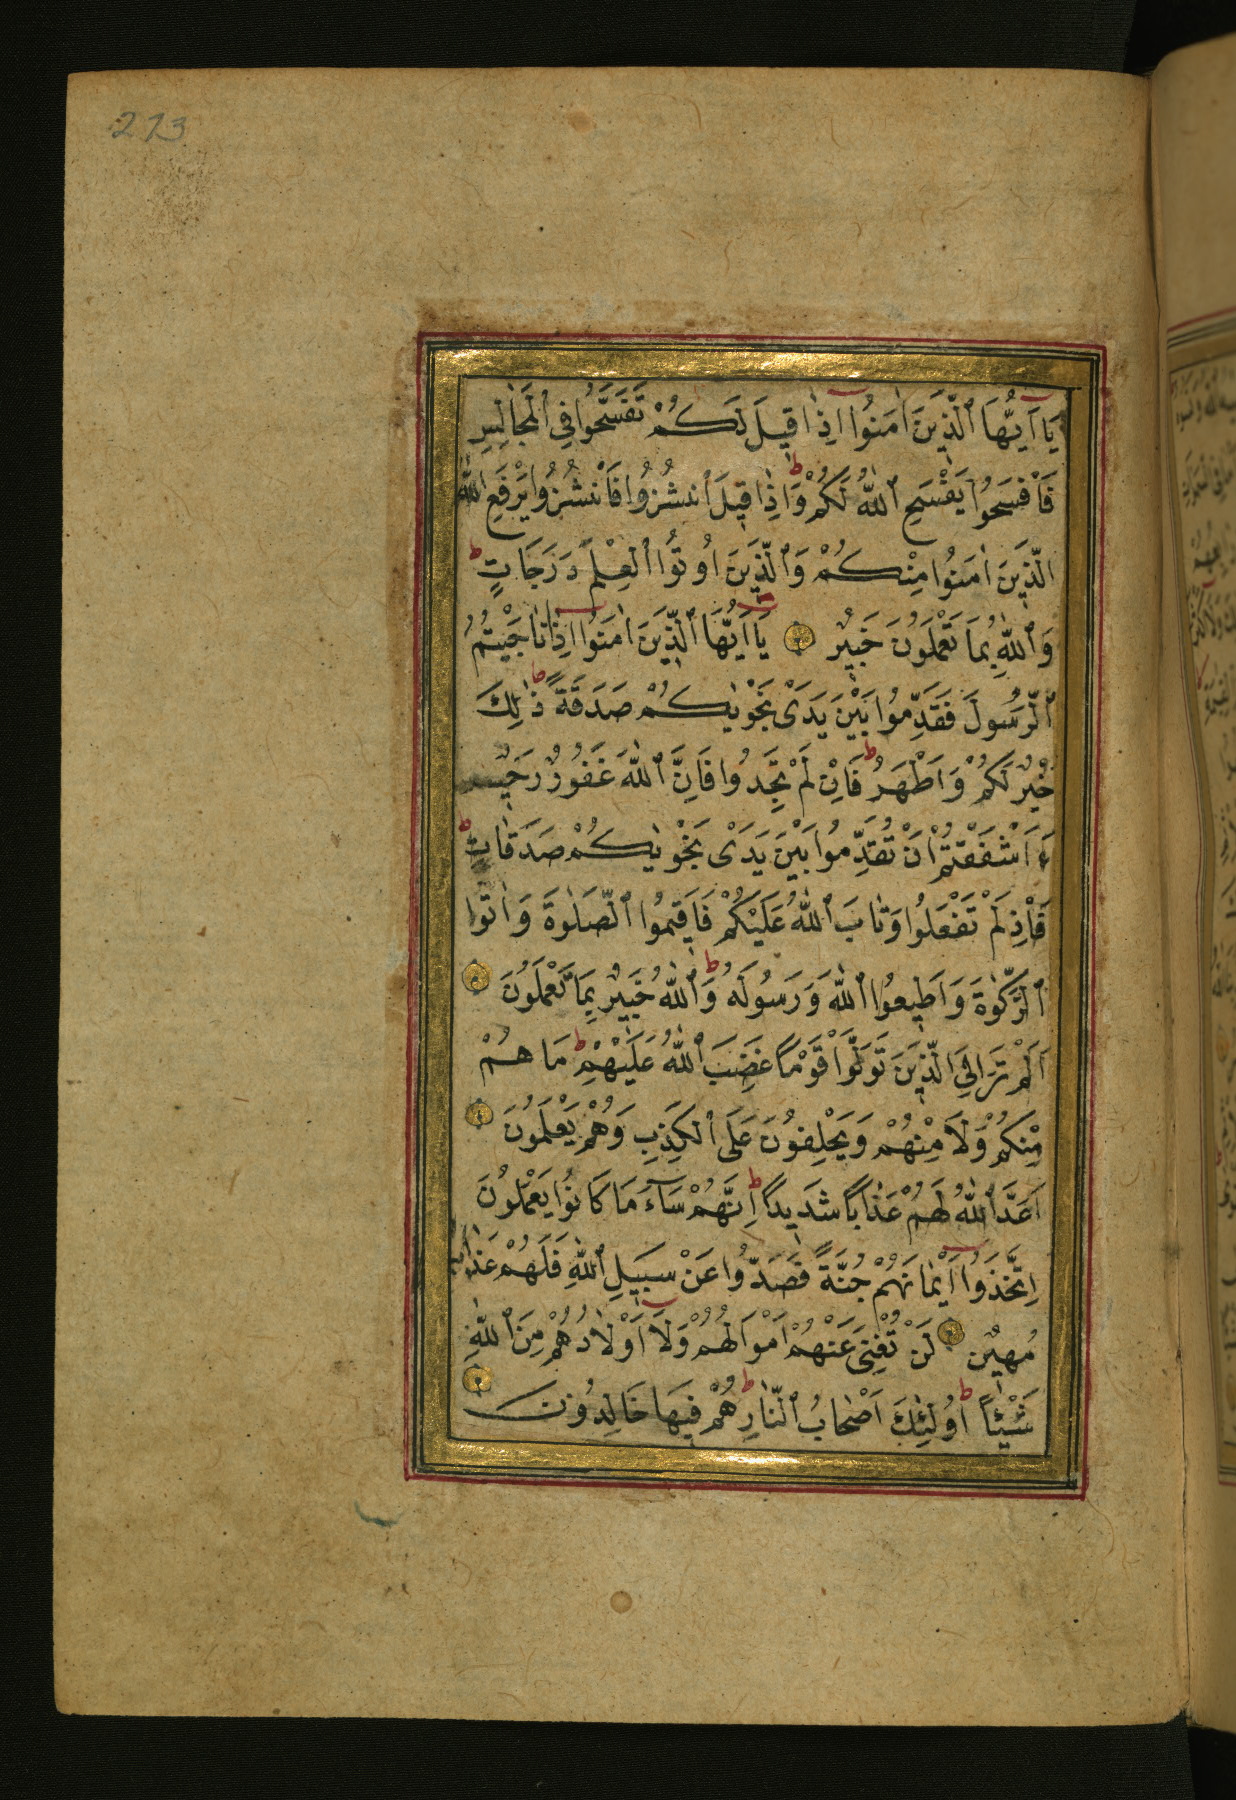 273
يَا اَيُّهَا ٱلَّذِينَ اٰمَنُوا اِذٰا قِيلَ لَكُمْ تَفَسَّحُوا فِي ٱلْمَجٰالِسِ
فَافْسَحُوا يَفْسَحِ ٱللّٰهُ لَكُمْ وَاِذٰا قِيلَ ٱنْشُزُوا فَانْشُزُوا يَرْفَعِ ٱللّٰهُ
الَّذِينَ اٰمَنُوا مِنْكُمْ وَٱلَّذِينَ اُوتُوا ٱلْعِلْمَ دَرَجَاتٍ ط
وَٱللّٰهُ بِمَا تَعْمَلُونَ خَبِيْرٌ يَا اَيُّهَا ٱلَّذِينَ اٰمَنُوا اِذٰا نٰاجَيْتُمُ
ٱلرَّسُولَ فَقَدِّمُوا بَيْنَ يَدَيْ نَجْوٰيكُمْ صَدَقَةً ط ذٰلِكَ
خَيْرٌ لَكُمْ وَاَطْهَرُ ط فَاِنْ لَمْ تَجِدُوا فَاِنَّ ٱللّٰهَ غَفُورٌ رَحِيمٌ
ءَاَشْفَقْتُمْ اَنْ تُقَدِّمُوا بَيْنَ يَدَيْ نَجْوٰيكُمْ صَدَقٰاتٍ ط
فَاِذْ لَمْ تَفْعَلُوا وَتٰابَ ٱللّٰهُ عَلَيْكُمْ فَاَقِيمُوا ٱلصَّلٰوةَ وَاٰتُوا
ٱلزَّكٰوةَ وَاَطِيعُوا ٱللّٰهَ وَرَسُولَهُ ط وَٱللّٰهُ خَبِيْرٌ بِمَا تَعْمَلُونَ
اَلَمْ تَرَ اِلَى الَّذِينَ تَوَلَّوْا قَوْمًا غَضِبَ ٱللّٰهُ عَلَيْهِمْ ط مَا هُمْ
مِنْكُمْ وَلَا مِنْهُمْ وَيَحْلِفُونَ عَلَى ٱلْكَذِبِ وَهُمْ يَعْلَمُونَ
اَعَدَّ ٱللّٰهُ لَهُمْ عَذٰابًا شَدِيدًا ط اِنَّهُمْ سَآءَ مَا كَانُوا يَعْمَلُونَ
اِتَّخَذُوا اَيْمٰانَهُمْ جُنَّةً فَصَدُّوا عَنْ سَبِيلِ ٱللّٰهِ فَلَهُمْ عَذٰابٌ
مُهِيْنٌ لَنْ تُغْنِيَ عَنْهُمْ اَمْوَالُهُمْ وَلَا اَوْلَادُهُمْ مِنَ ٱللّٰهِ
شَيْئًا ط اُولٰئِكَ اَصْحٰابُ ٱلنّٰارِ ط هُمْ فِيهَا خَالِدُونَ